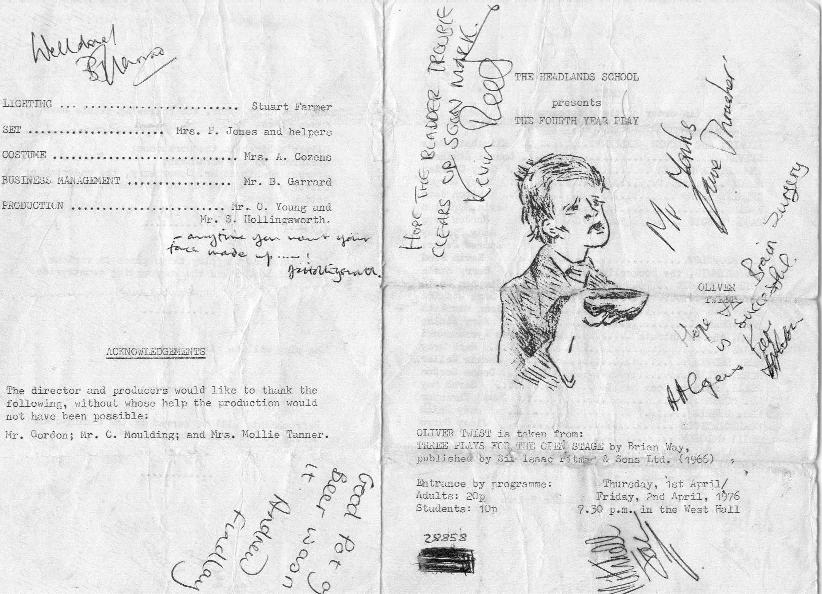 Well done!
LIGHTING ... ........................ Stuart Farmer
SET ..................... Mrs. P. Jones and helpers
COSTUME ............................. Mrs. A. Cozens
BUSINESS MANAGEMENT ................ Mr. B. Garrard
PRODUCTION ........................ Mr. O. Young and
Mr. S. Hollingsworth.
- anytime you want your
face made up ....!
ACKNOWLEDGEMENTS
The director and producers would like to thank the
following, without whose help the production would
not have been possible:
Mr. Gordon; Mr. C. Moulding; and Mrs. Mollie Tanner.
Good Pot of
Beer wasn
it. Andrew
Findlay
HOPE THE BLADDER TROUBLE
CLEARS UP SOON MARK.
Kevin Reed
THE HEADLANDS SCHOOL
presents
THE FOURTH YEAR PLAY
Mr Monks
Dave Thrasher
OLIVER
TWIST
Hope the Brain Surgery
is successful
OLIVER TWIST is taken from:
THREE PLAYS FOR THE OPEN STAGE by Brian Way,
published by Sir Isaac Pitman & Sons Ltd. (1966)
Entrance by programme:
Adults: 20p
Students: 10p
Thursday, 1st April/
Friday, 2nd April, 1976
7.30 p.m. in the West Hall
28858